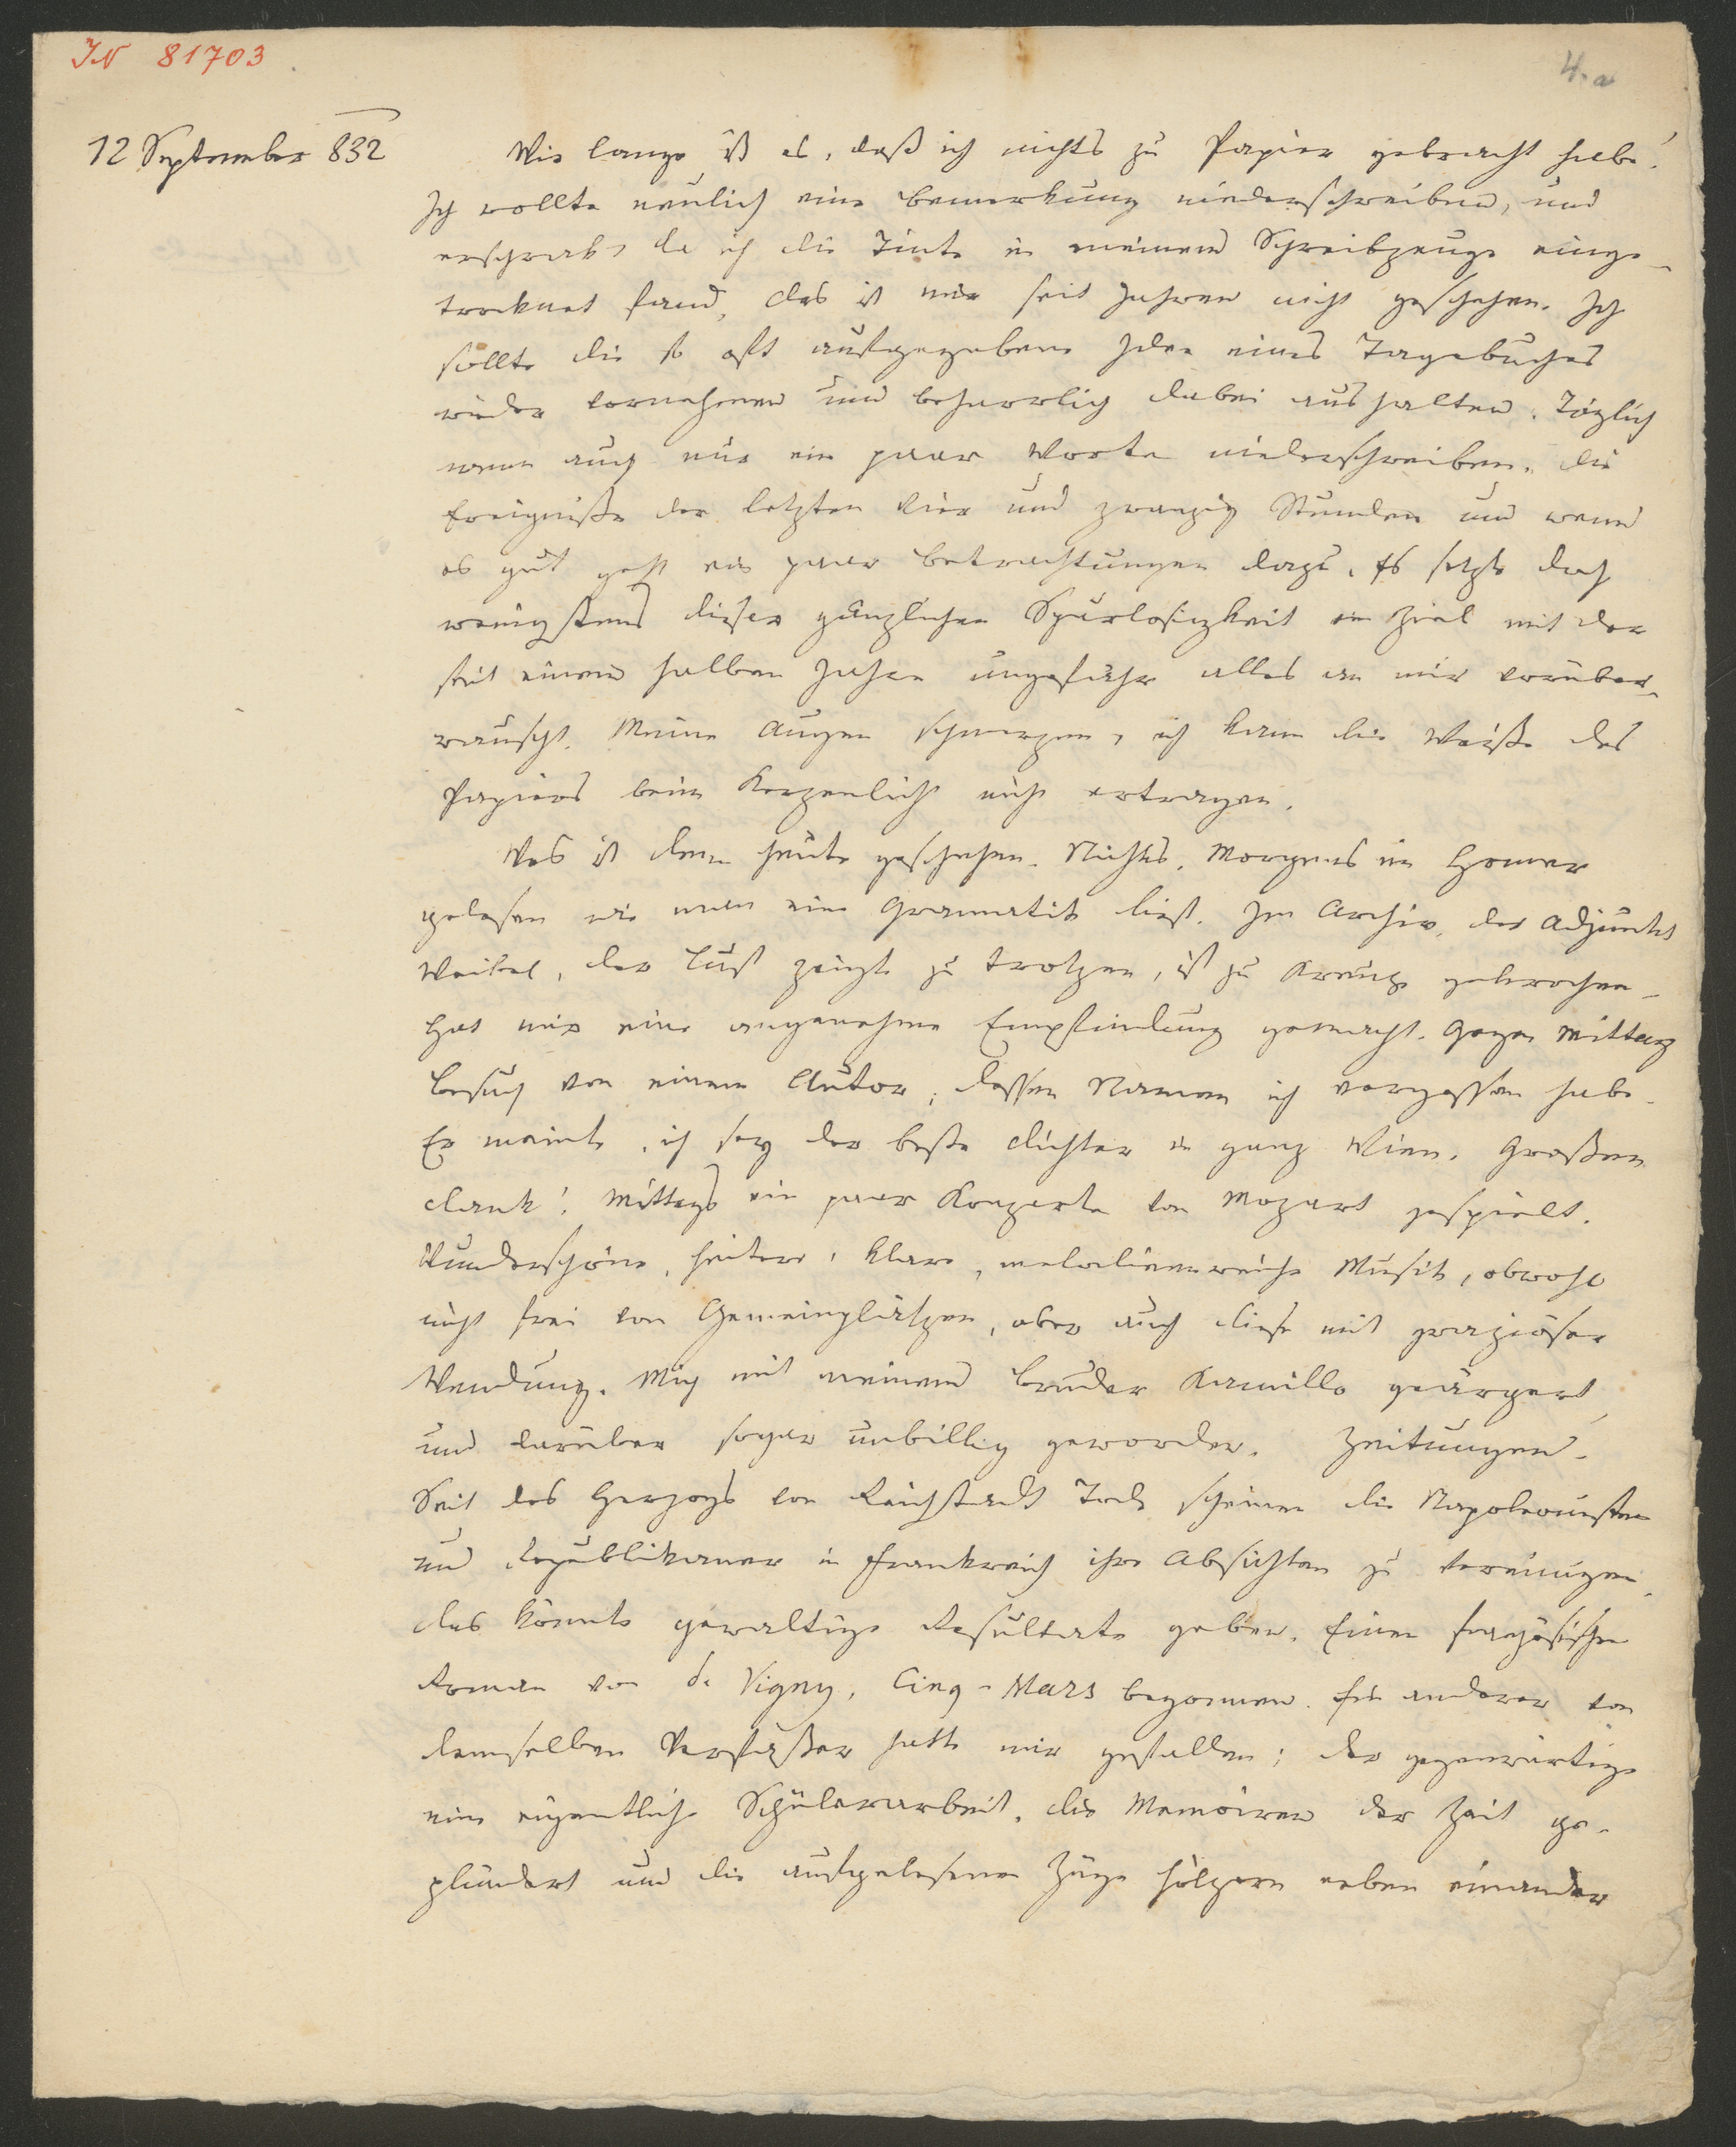 IN 81703
4.a
12 September 832
Wie lange ist es, daß ich nichts zu Papier gebracht habe!
Ich wollte neulich eine Bemerkung niederschreiben, und
erschrak, da ich die Tinte in meinem Schreibzeuge einge-
trocknet fand, das ist mir seit Jahren nicht geschehen. Ich
sollte die so oft aufgegebene Idee eines Tagebuches
wieder vornehmen und beharrlich dabei aushalten. Täglich
wenn auch nur ein paar Worte niederschreiben. die
Ereigniße der letzten vier und zwanzig Stunden und wenn
es gut geht ein paar Betrachtungen dazu. Es setzte doch
wenigstens dieser gänzlichen Spurlosigkeit ein Ziel mit der
seit einem halben Jahre ungefähr alles an mir vorüber-
rauscht. Meine Augen schmerzen, ich kann die Weiße des
Papiers beim Kerzenlicht nicht ertragen.
Was ist denn heute geschehen. Nichts. Morgens im Homer
gelesen wie man eine Grammatik liest. Im Archiv. der Adjunkt
Weibel, der Lust zeigte zu trotzen, ist zu Kreuz gekrochen.
Hat mir eine angenehme Empfindung gemacht. Gegen Mittag
Besuch von einem Autor, dessen Namen ich vergessen habe.
Er meinte, ich sey der beste Dichter in ganz Wien. Großen
Dank! Mittags ein paar Konzerte von Mozart gespielt.
Wunderschöne, heitere, klare, melodieenreiche Musik, obwohl
nicht frei von Gemeinplätzen, aber auch diese mit graziöser
Wendung. Mich mit meinem Bruder Kamillo geärgert,
und darüber sogar unbillig geworden. Zeitungen.
Seit des Herzogs von Reichstadt Tode scheinen die Napoleonisten
und Republikaner in Frankreich ihre Absichten zu vereinigen.
das könnte gewaltige Resultate geben. Einen französischen
Roman von de Vigny, Cinq-Mars begonnen. Ein anderer von
demselben Verfaßer hatte mir gefallen; der gegenwärtige
eine eigentliche Schülerarbeit. die Memoiren der Zeit ge-
plündert und die aufgelesenen Züge hölzern neben einander